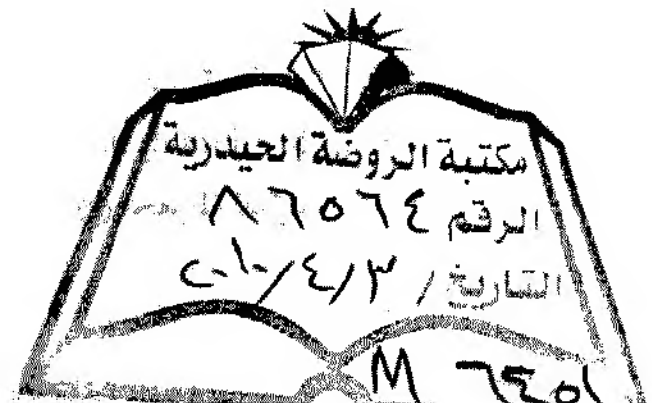 مكتبة الروضة الحيدرية
الرقم ٨٦٥٦٤
التاريخ / ٣/٤/٢٠١٠
M ٦٤٥١